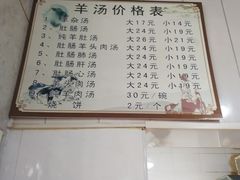 羊汤价格表
杂汤 大17元 小14元
2、肚肠汤 大24元 小19元
3、纯羊肚汤 大26元 小21元
4、肚肠羊头肉汤 大24元 小19元
5、肚肠肺汤 大24元 小19元
6、肚肠肝汤 大24元 小19元
肚肠心汤 大24元 小19元
头肉汤 大24元 小19元
汤 30元/碗
烧饼 2元/个